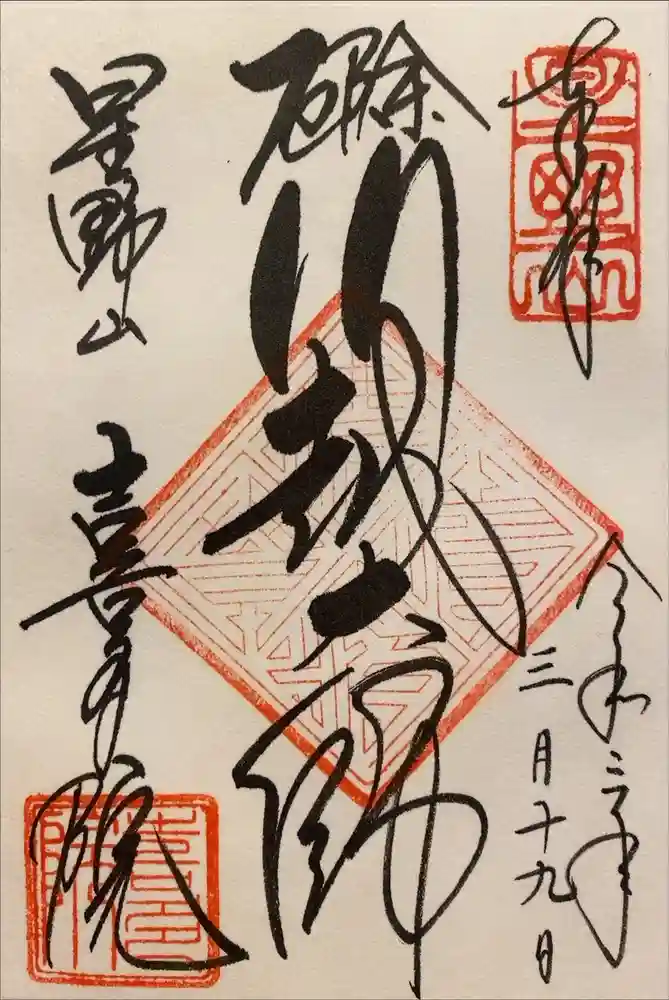 奉拝
令和三年
三月十九日
厄除
川越大師
星野山
喜多院